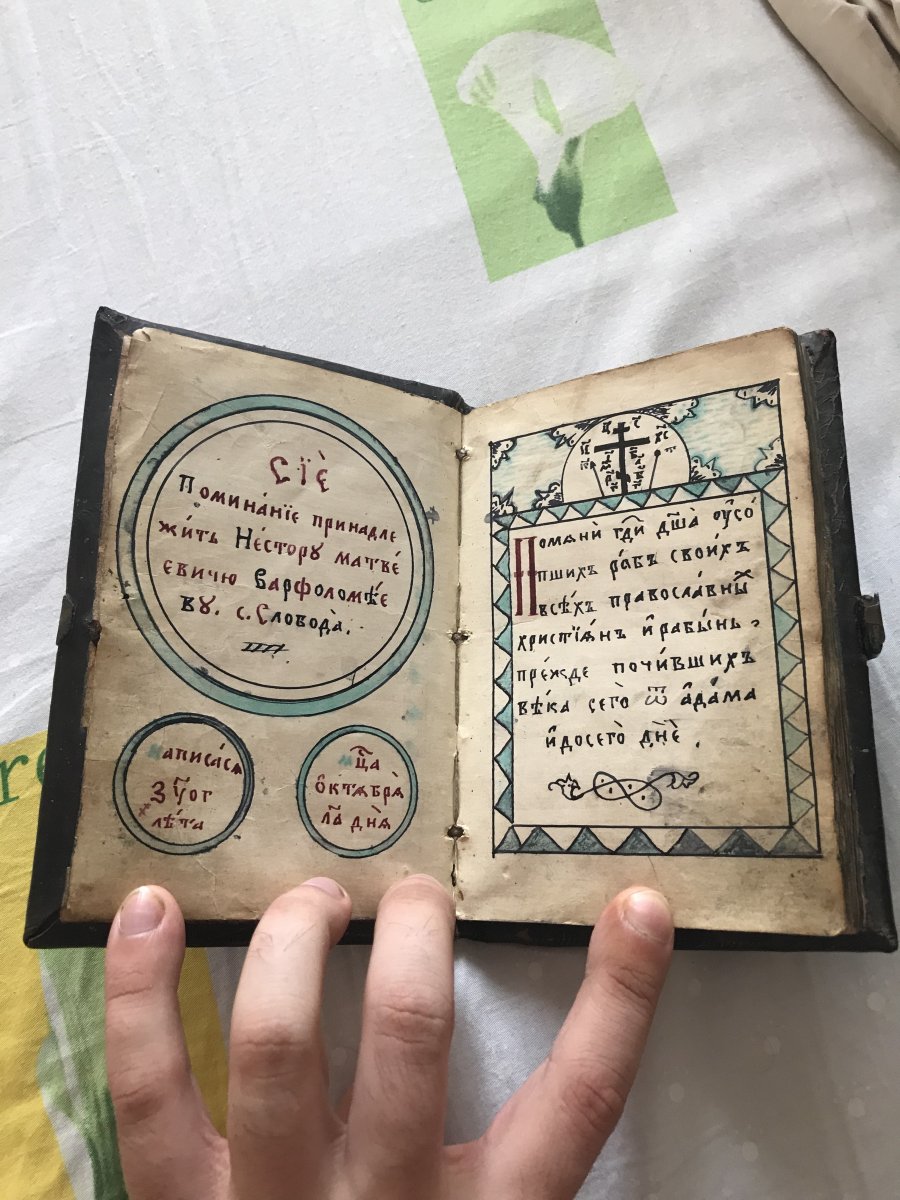 Сїѐ
Помина́нїе принадле
жи́ть Не́стору матвѣ́
евичю варфоломѣ́е
ву. с. Словода̀.
написа́сѧ
лѣ́та
мц҃а
ѻ҆ктѧбрѧ̀
днѧ̀
Помѧнѝ гд҇и дш҃а ᲂу҆со́
пшихъ ра́бъ свои́хъ
всѣ́хъ правосла́вны́х
христїѧ́нъ и҆ рабы́нь,
пре́жде почи́вшихъ
вѣ́ка сего̀ ѿ а҆да́ма
и҆ досего̀ дн҃ѐ.